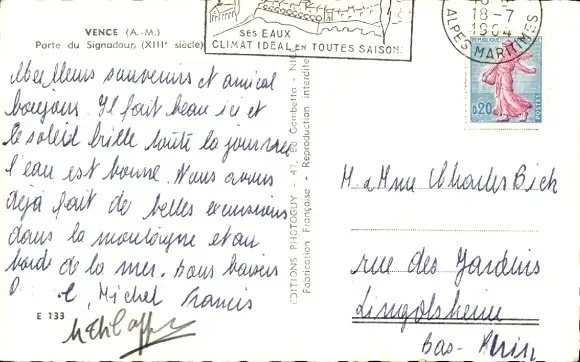 VENCE (A.-M.)
Porte du Signadour (XIIIe siècle)
SES EAUX
CLIMAT IDEAL EN TOUTES SAISONS
18-7
1964
ALPES MARITIMES
0,20
POSTES
Meilleurs souvenirs et amical
bonjour. Il fait beau ici et
le soleil brille toute la journée
l'eau est bonne. Nous avons
déjà fait de belles excursions
dans la montaigne et au
bords de la mer.
Michel Francis
E 133
EDITIONS PHOTOGUY - 47, Rue Gambetta -
Fabrication Française - Reproduction interdite
M. & Mme Charles Bick
rue des Jardins
Lingolsheim
Bas-Rhin